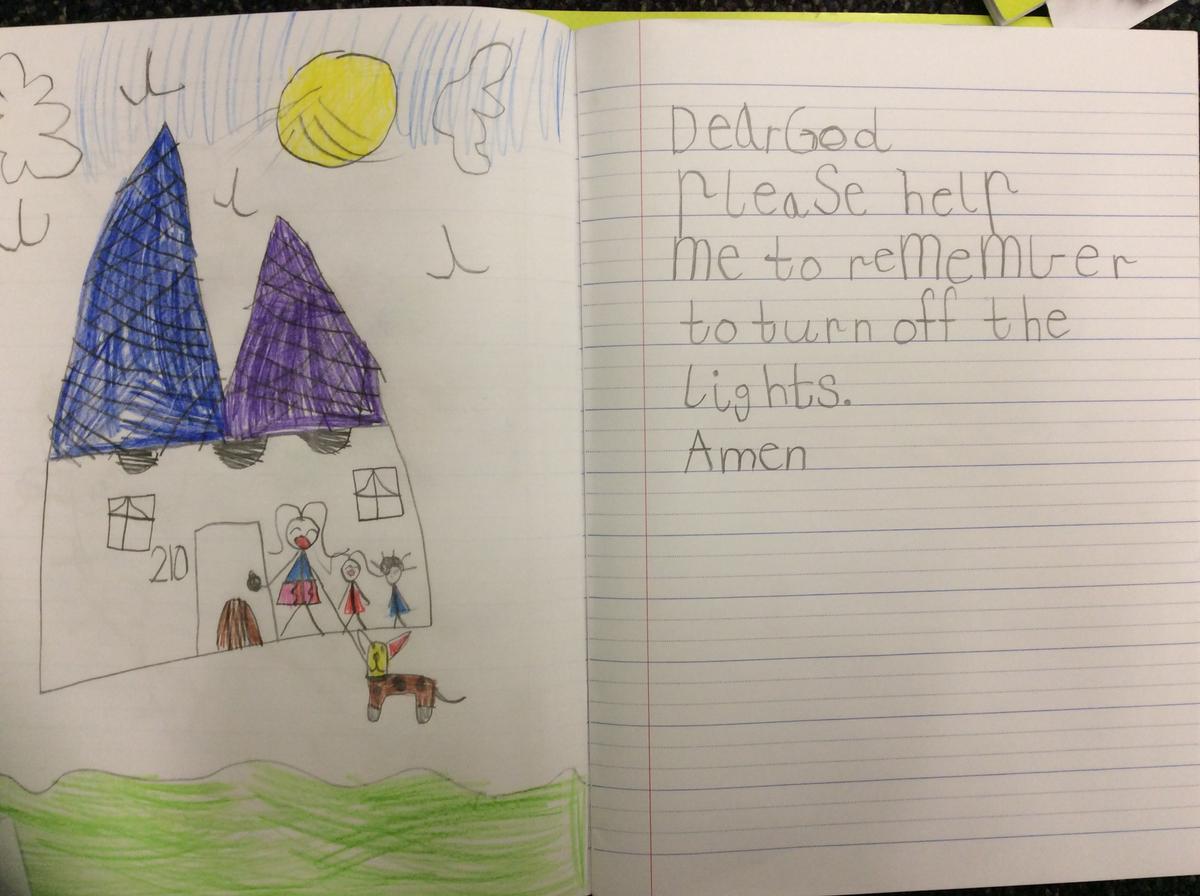 210
Dear God
please help
me to remember
to turn off the
Lights.
Amen